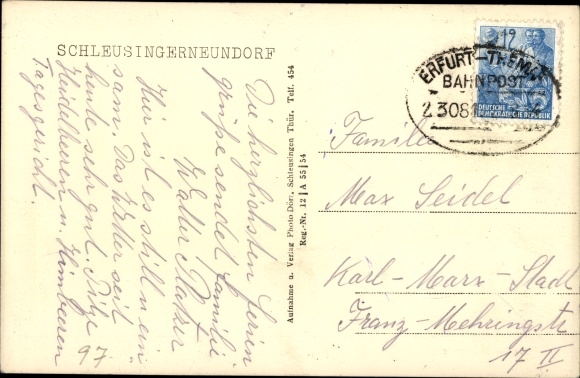 SCHLEUSINGERNEUNDORF
Die herzlichsten Ferien
grüße sendet Familie
Walter
Hier ist es still u. ein
sam. Das Wetter seit
heute sehr gut. Pilze
Heidelbeeren u. Himbeeren
Tagesgericht.
97
Aufnahme u. Verlag Photo Dörr, Schleusingen Thür. Telf. 454
Reg.-Nr. 12 | A 55 | 54
19
ERFURT-THEMAR
BAHNPOST
23081
DEUTSCHE
DEMOKRATISCHE REPUBLIK
Familie
Max Seidel
Karl-Marx-Stadt
Franz-Mehringstr
17 II